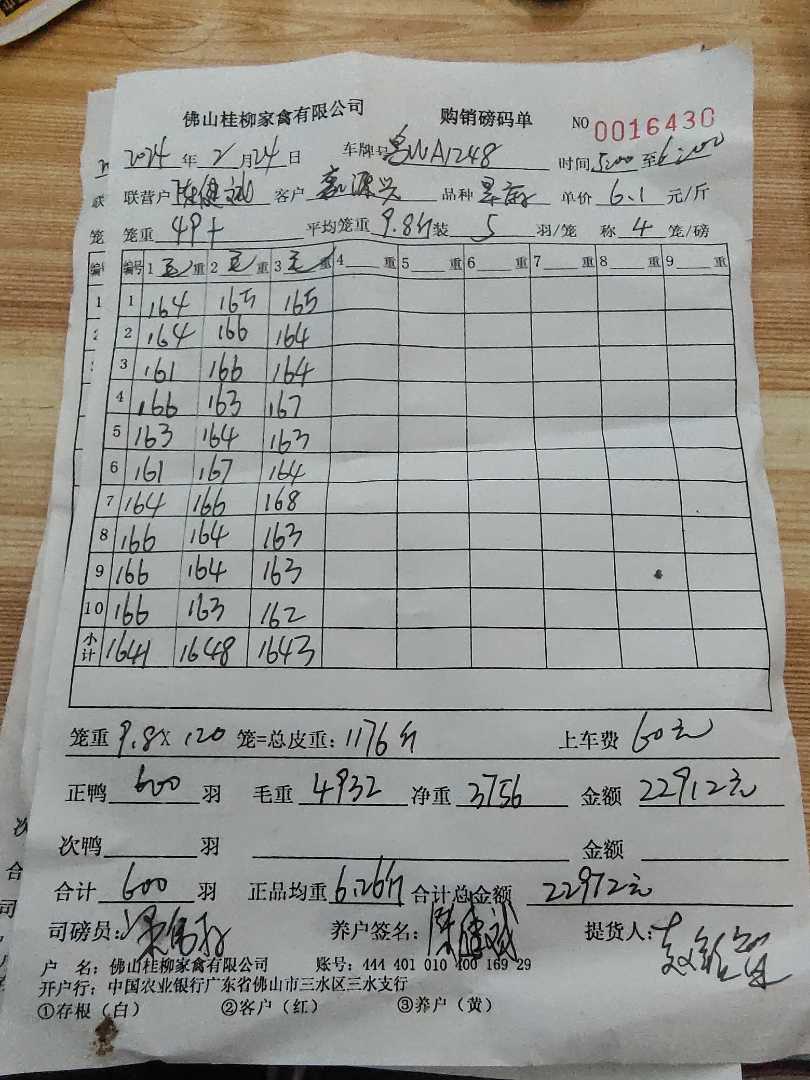 佛山桂柳家禽有限公司 购销磅码单 NO 0016430
2024 年 2 月 24 日 车牌号 WA1248 时间 5:00 至 6:00
联营户 陈健斌 客户 源兴 品种 单价 6.1 元/斤
笼重 49斤 平均笼重 9.8斤 装 5 羽/笼 称 4 笼/磅
编号 1 毛 重 2 毛 重 3 毛 重 4 重 5 重 6 重 7 重 8 重 9 重
1 164 165 165
2 164 166 164
3 161 166 164
4 166 163 167
5 163 164 163
6 161 167 164
7 164 166 168
8 166 164 163
9 166 164 163
10 166 163 162
小计 1641 1648 1643
笼重 9.8 X 120 笼=总皮重: 1176斤 上车费 60元
正鸭 600 羽 毛重 4932 净重 3756 金额 22912元
次鸭 羽 金额
合计 600 羽 正品均重 6.26斤 合计总金额 22972元
司磅员: 养户签名: 陈健斌 提货人:
户 名: 佛山桂柳家禽有限公司 账号: 444 401 010 400 169 29
开户行: 中国农业银行广东省佛山市三水区三水支行
①存根(白) ②客户(红) ③养户(黄)